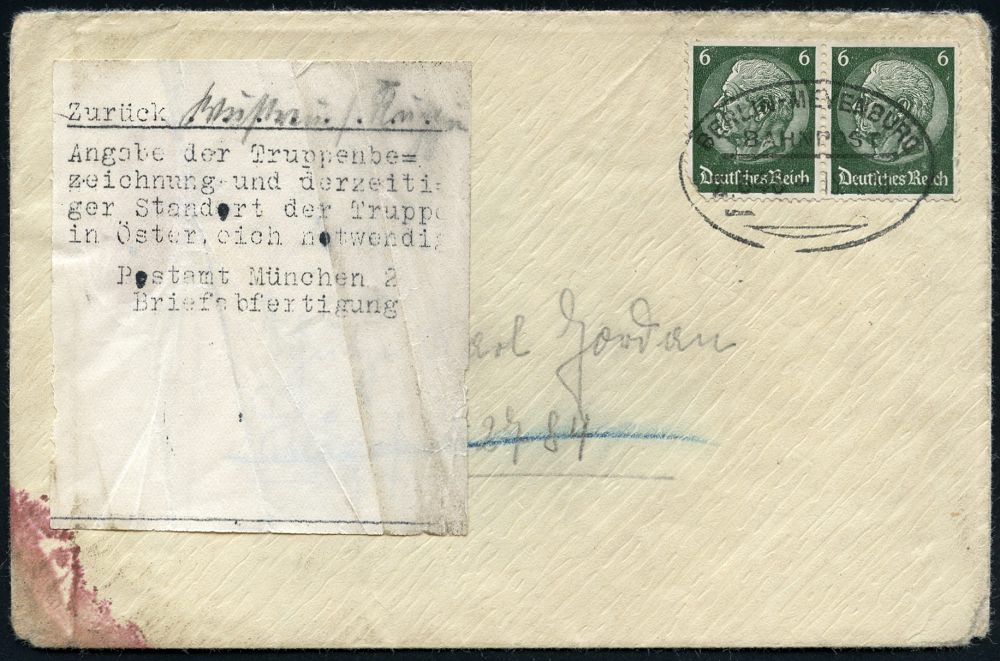 Zurück
Angabe der Truppenbe=
zeichnung und derzeiti-
ger Standort der Truppe
in Österreich notwendig
Postamt München 2
Briefabfertigung
6 6
Deutsches Reich Deutsches Reich
BERLIN-MEYENBURG
BAHNPOST
arl Jordan
84